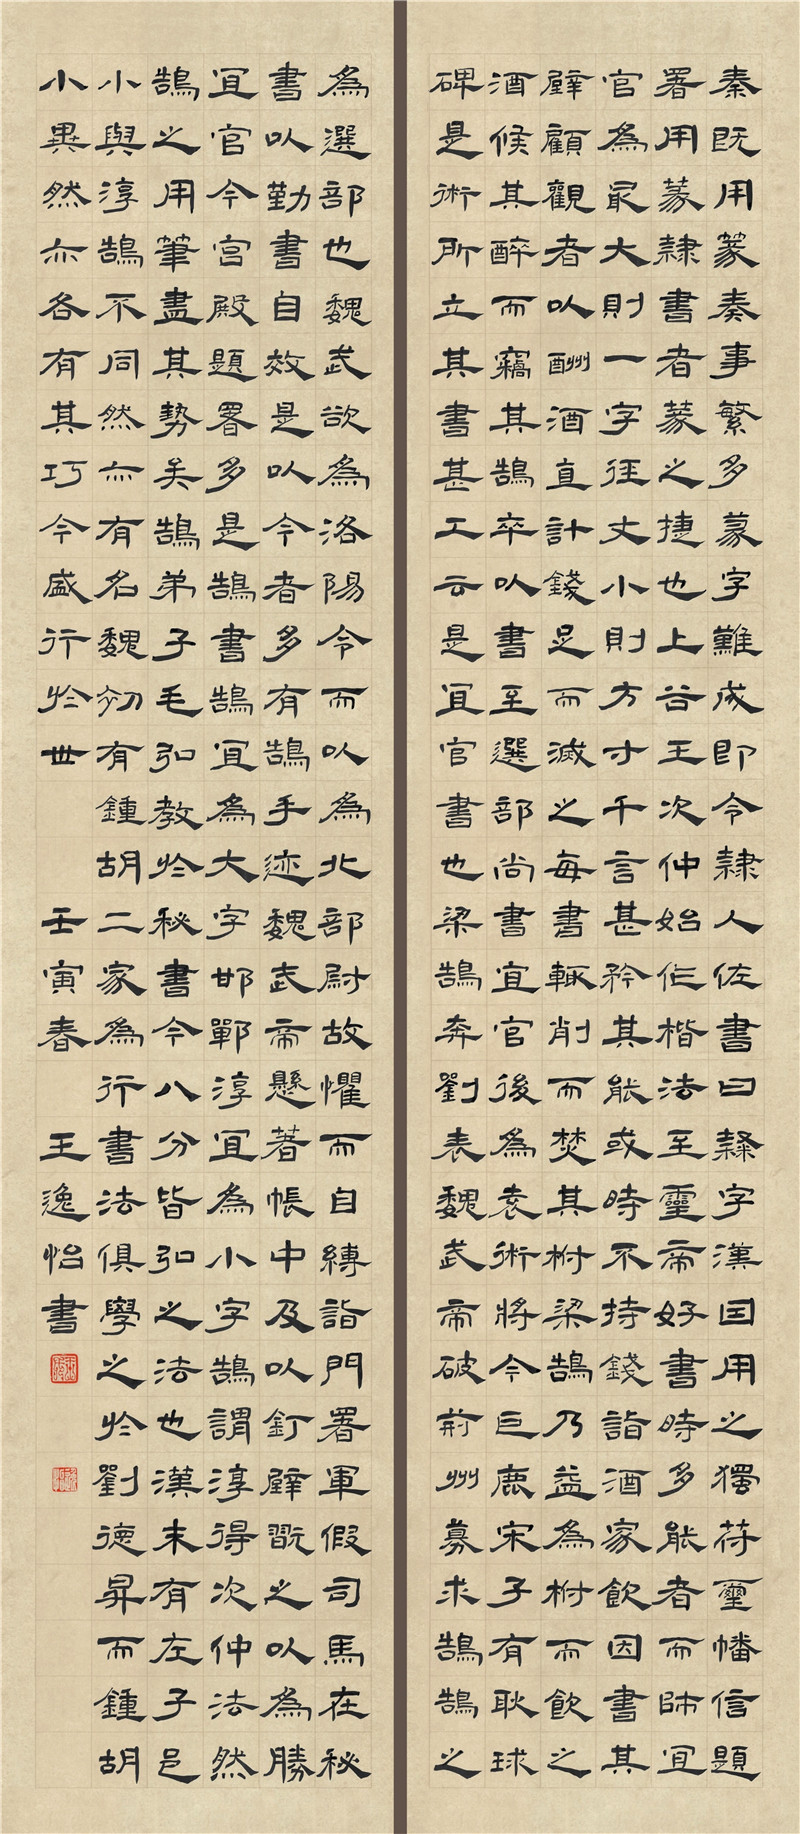 秦既用篆奏事繁多篆字難成即令隸人佐書曰隸字漢因用之獨符璽幡信題
署用篆隸書者篆之捷也上谷王次仲始作楷法至靈帝好書時多能者而師宜
官為最大則一字徑丈小則方寸千言甚矜其能或時不持錢詣酒家飲因書其
壁顧觀者以酬酒直計錢足而滅之每書輒削而焚其柎梁鵠乃益為柎而飲之
酒候其醉而竊其鵠卒以書至選部尚書宜官後為袁術將今巨鹿宋子有耿球
碑是術所立其書甚工云是宜官書也梁鵠奔劉表魏武帝破荊州募求鵠鵠之
為選部也魏武欲為洛陽令而以為北部尉故懼而自縛詣門署軍假司馬在秘
書以勤書自效是以今者多有鵠手迹魏武帝懸著帳中及以釘壁翫之以為勝
宜官今宮殿題署多是鵠書鵠宜為大字邯鄲淳宜為小字鵠謂淳得次仲法然
鵠之用筆盡其勢矣鵠弟子毛弘教於秘書今八分皆弘之法也漢末有左子邑
小與淳鵠不同然亦有名魏初有鍾胡二家為行書法俱學之於劉德昇而鍾胡
小異然亦各有其巧今盛行於世
壬寅春 王逸怡書